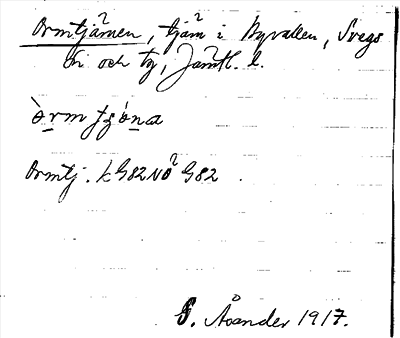 Ormtjärnen, tjärn i Byvallen, Svegs
sn och tg, Jämtl. l.
òrmtjǿna
Ormtj. k G82 NÖ G82
E. Åsander 1917.